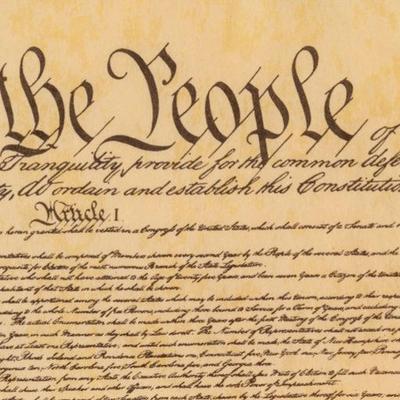 the People of
Tranquility, provide for the common defe
ty, do ordain and establish this Constitutio
Article I
herein granted shall be vested in a Congress of the United States, which shall consist of a Senate and
shall be composed of Members chosen every second Year by the People of the several States, and the
requisite for Electors of the most numerous Branch of the State Legislature.
who shall not have attained to the Age of twenty five Years and been seven Years a Citizen of the United
of that State in which he shall be chosen.
shall be apportioned among the several States which may be included within this Union, according to their
to the whole Number of free Persons, including those bound to Service for a Term of Years, and excluding
The actual Enumeration shall be made within three Years after the first Meeting of the Congress of the
and in such Manner as they shall by Law direct. The Number of Representatives shall not exceed one
at Least one Representative; and until such enumeration shall be made, the State of New Hampshire
eight, Rhode Island and Providence Plantations one, Connecticut five, New York six, New Jersey four, Penn
ten, North Carolina five, South Carolina five, and Georgia three.
Representation from any State, the Executive Authority thereof shall issue Writs of Election to fill such Vacancies.
shall chuse their Speaker and other Officers; and shall have the sole Power of Impeachment.
shall be composed of two Senators from each State, chosen by the Legislature thereof, for six Years;